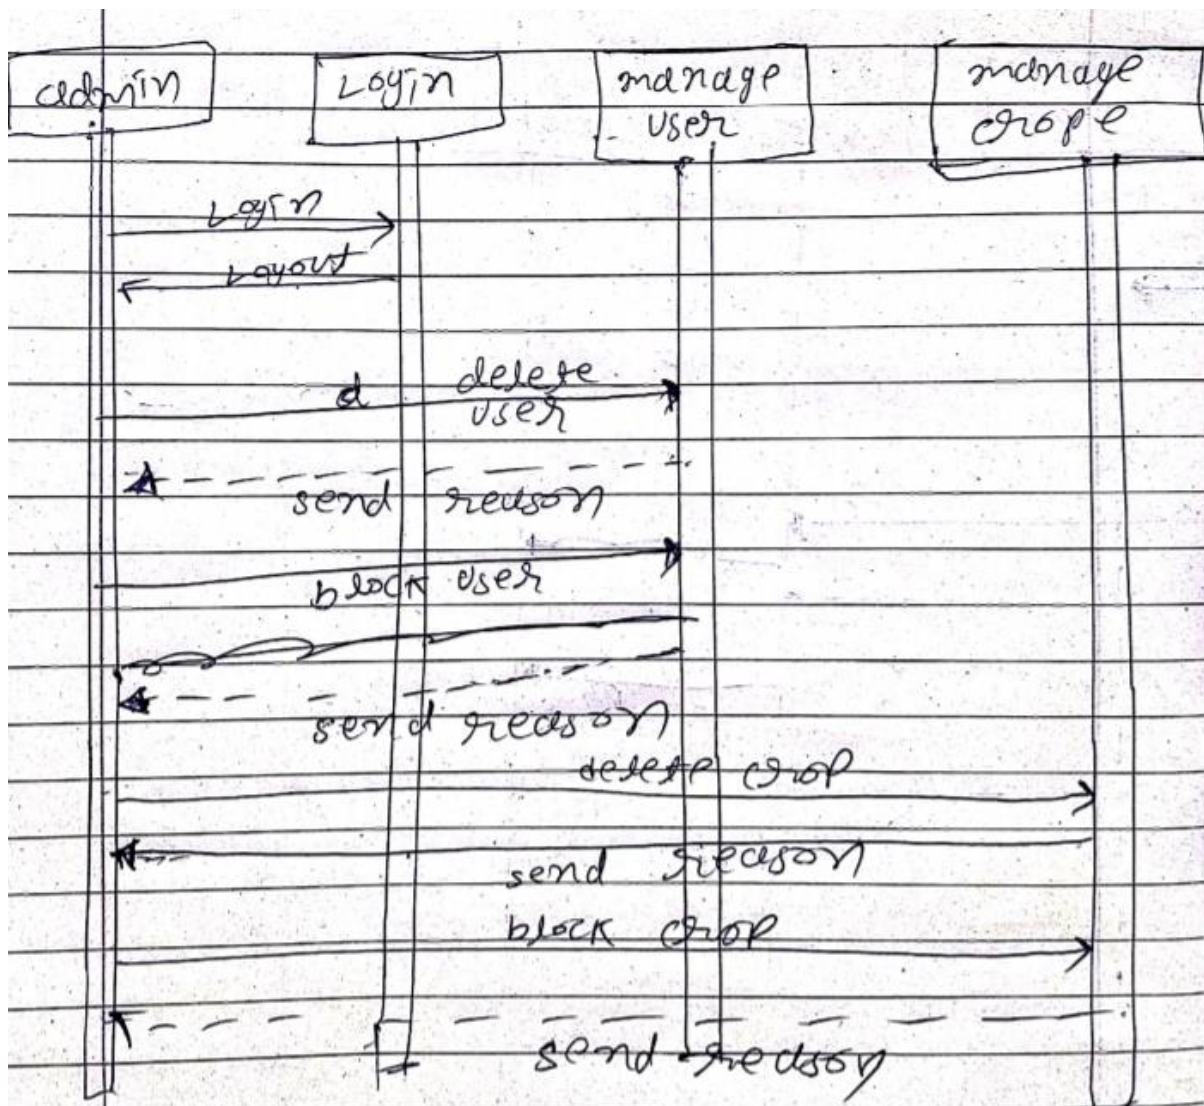 admin
Login
manage
user
manage
crope
Login
Logout
d delete
user
send reason
block user
send reason
delete crop
send reason
block crop
send reason